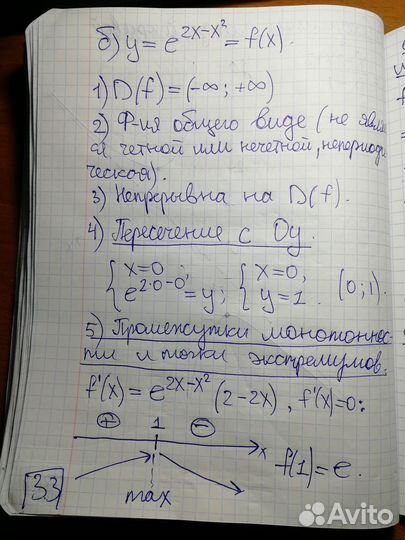 б) y = e^{2x-x²} = f(x).
1) D(f) = (-∞; +∞)
2) Ф-ия общего виде (не явля
ся четной или нечетной, непериоди
ческая).
3) Непрерывна на D(f).
4) Пересечение с Oy.
{ x=0, e^{2·0-0} = y; { x=0, y=1. (0; 1).
5) Промежутки монотоннос-
ти и точки экстремумов.
f'(x) = e^{2x-x²} (2-2x), f'(x)=0:
+ 1 − x
f(1) = e.
33
max
Avito